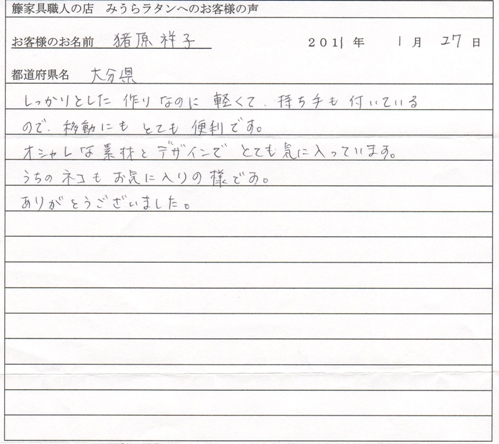 籐家具職人の店　みうらラタンへのお客様の声
お客様のお名前　猪原祥子　2011年　1月　27日
都道府県名　大分県
しっかりとした 作りなのに 軽くて、持ち手も 付いている
ので、移動にも とても 便利です。
オシャレな素材とデザインで とても気に入っています。
うちの ネコも お気に入りの 様です。
ありがとうございました。